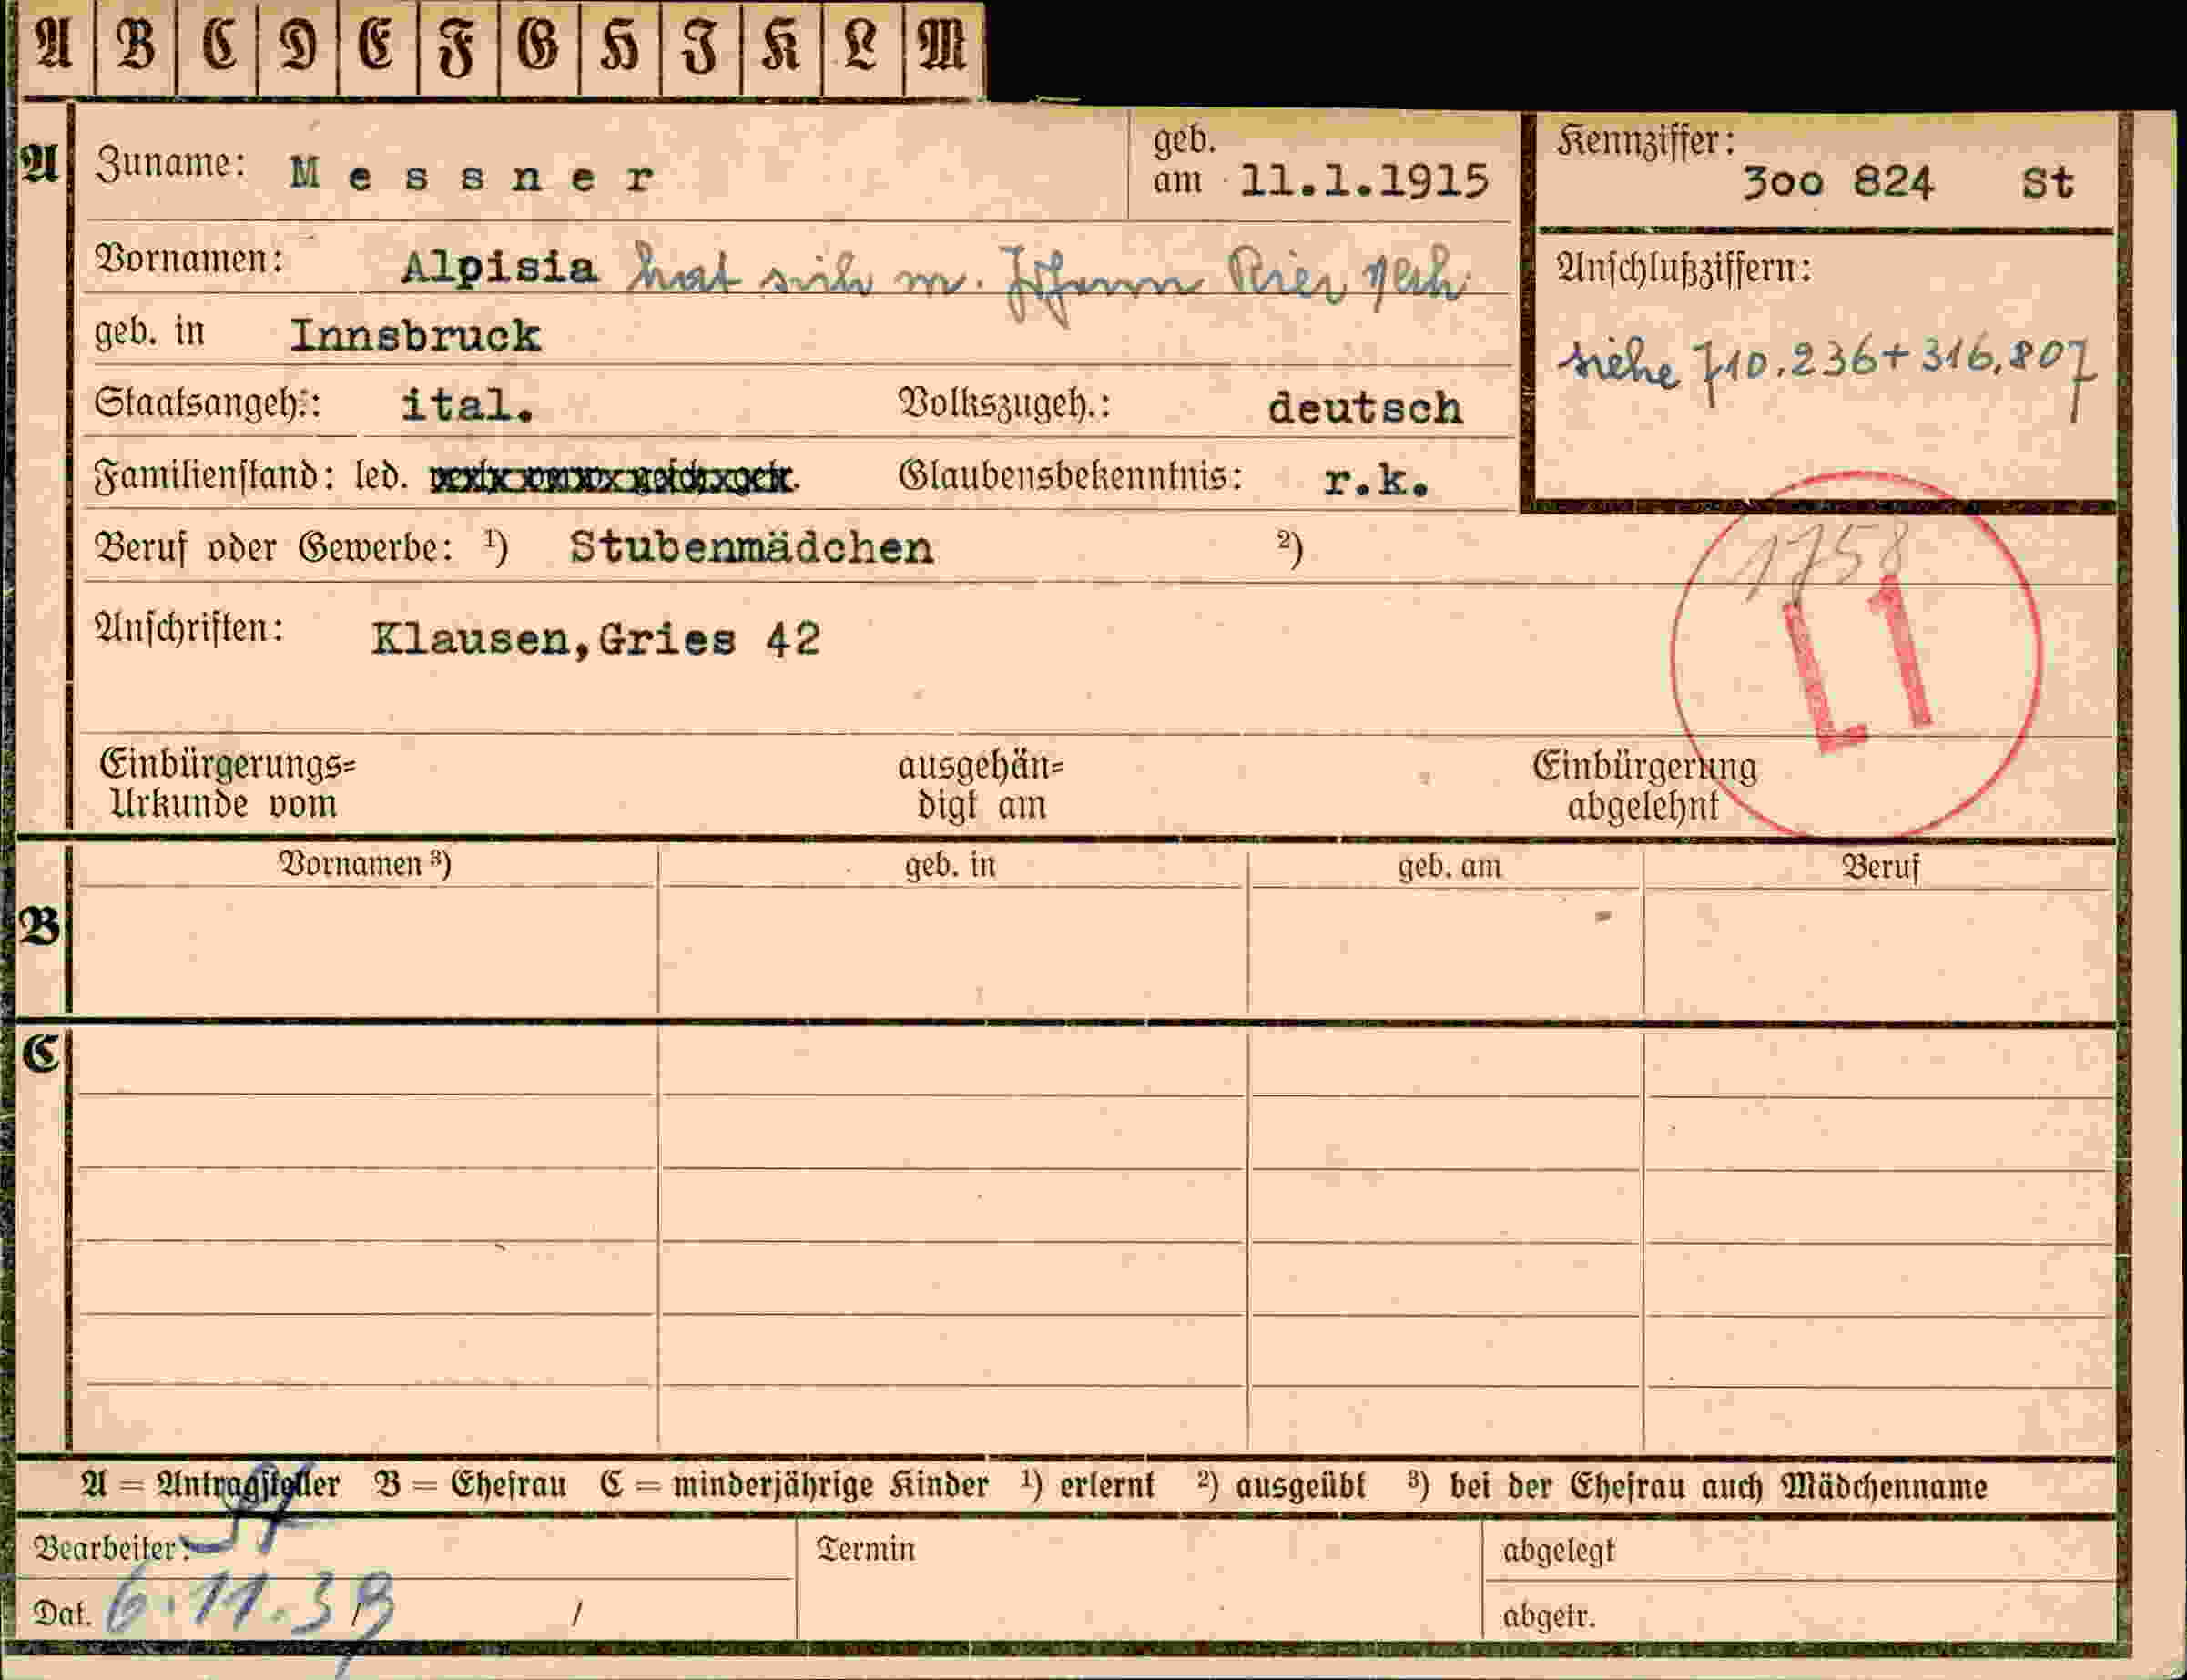 A B C D E F G H I K L M
A Zuname: Messner geb. am 11.1.1915 Kennziffer: 300 824 St
Vornamen: Alpisia hat sich m. Johann Rier Anschlußziffern:
geb. in Innsbruck siehe 710.236+316.807
Staatsangeh.: ital. Volkszugeh.: deutsch
Familienstand: led. Glaubensbekenntnis: r.k.
Beruf oder Gewerbe: ¹) Stubenmädchen ²) 1758
Anschriften: Klausen,Gries 42 L1
Einbürgerungs= ausgehän= Einbürgerung
Urkunde vom digt am abgelehnt
Vornamen ³) geb. in geb. am Beruf
B
C
A = Antragsteller B = Ehefrau C = minderjährige Kinder ¹) erlernt ²) ausgeübt ³) bei der Ehefrau auch Mädchenname
Bearbeiter: Termin abgelegt
Dat. 6.11.39 / / abgetr.